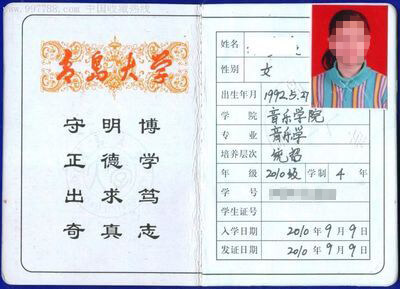 www.997788.com 中国收藏热线
青岛大学
守明博
正德学
出求笃
奇真志
姓名
性别 女
出生年月 1992.5.27
学院 音乐学院
专业 音乐学
培养层次 统招
年级 2010级 学制 4 年
学号
学生证号
入学日期 2010 年 9 月 9 日
发证日期 2010 年 9 月 9 日